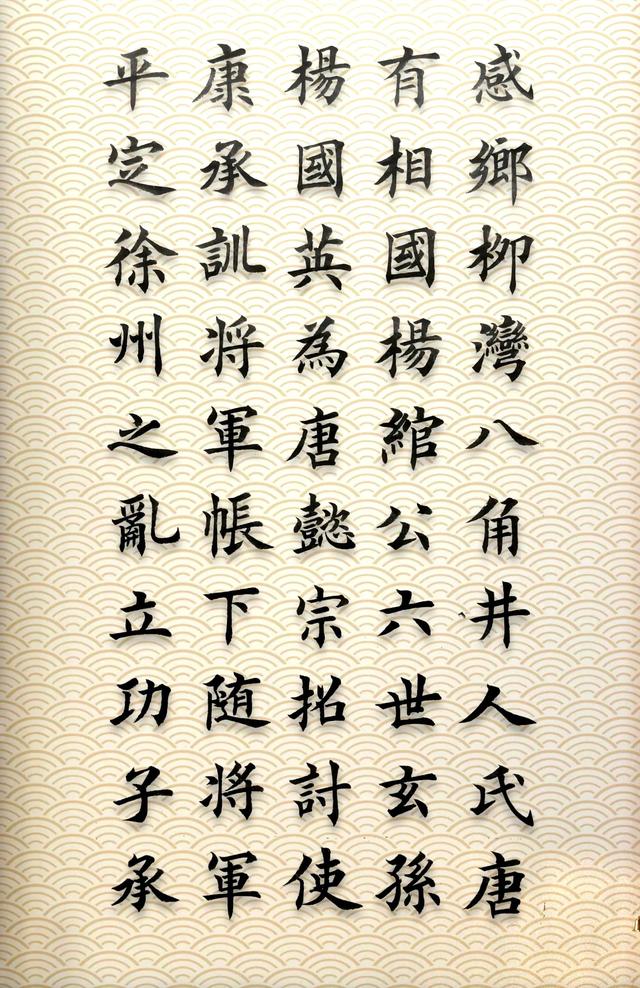 感鄉柳灣八角井人氏唐
有相國楊綰公六世玄孫
楊國英為唐懿宗招討使
康承訓将軍帳下随將軍
平定徐州之亂立功子承